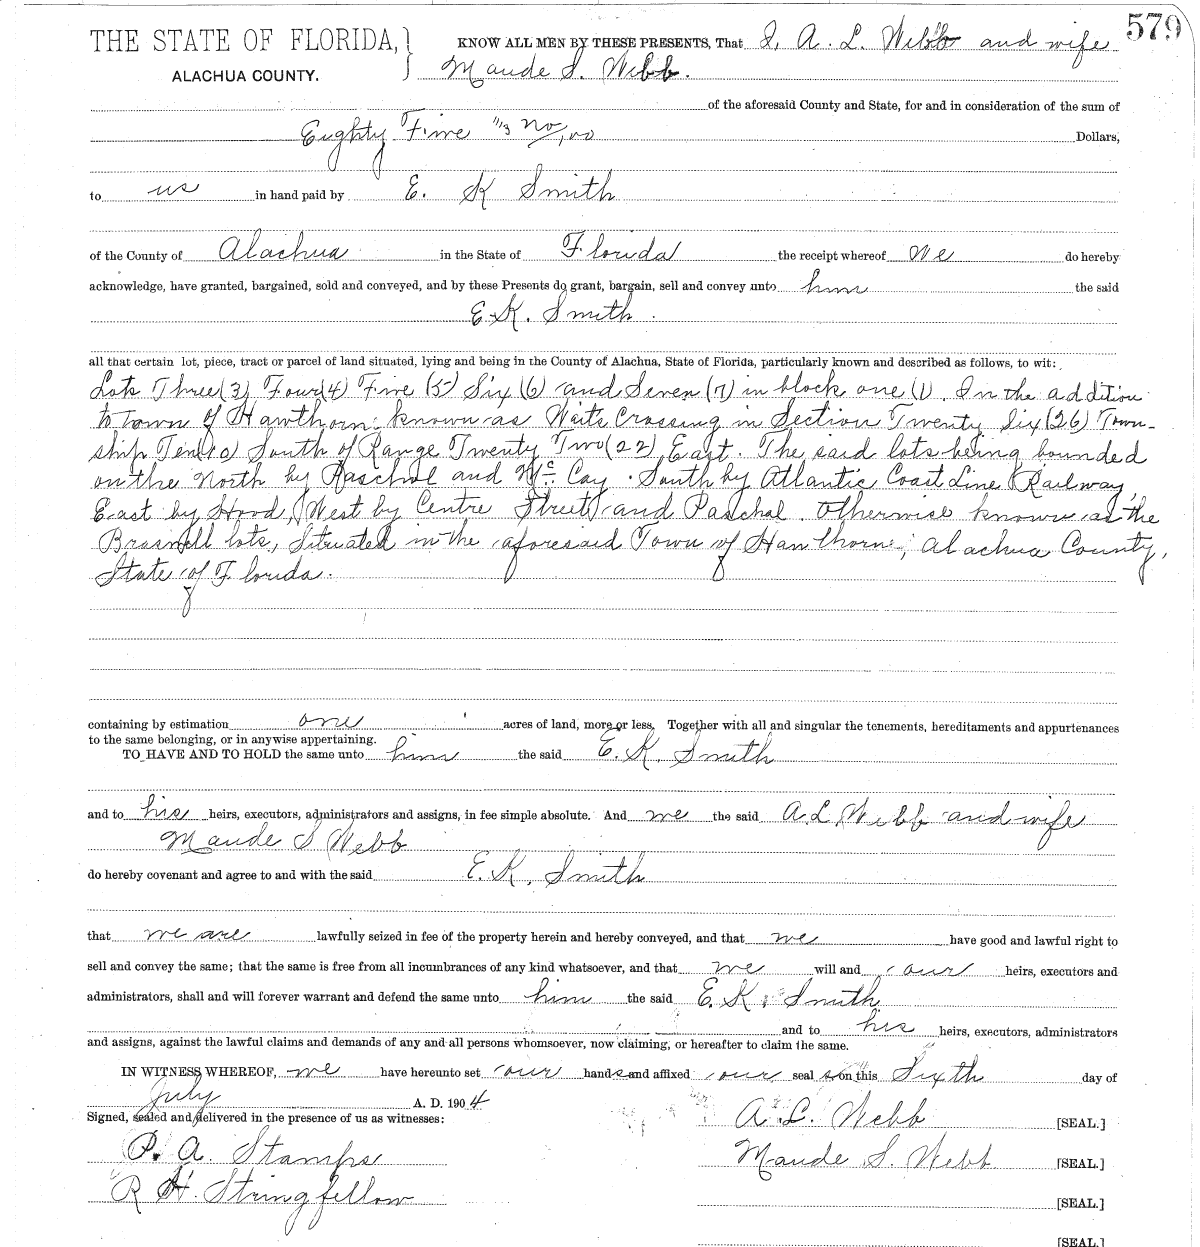 579
THE STATE OF FLORIDA,
ALACHUA COUNTY.
KNOW ALL MEN BY THESE PRESENTS, That I, A. L. Webb and wife
Maude S. Webb.
of the aforesaid County and State, for and in consideration of the sum of
Eighty Five no/00 Dollars,
to us in hand paid by E. K Smith
of the County of Alachua in the State of Florida the receipt whereof we do hereby
acknowledge, have granted, bargained, sold and conveyed, and by these Presents do grant, bargain, sell and convey unto him the said
E. K. Smith.
all that certain lot, piece, tract or parcel of land situated, lying and being in the County of Alachua, State of Florida, particularly known and described as follows, to wit:
Lots Three (3) Four (4) Five (5) Six (6) and Seven (7) in block one (1). In the addition
to town of Hawthorn known as Waits Crossing in Section Twenty Six (26) Town-
ship Ten South of Range Twenty Two (22) East. The said lots being bounded
on the North by Paschal and Mc Cay. South by Atlantic Coast Line Railway,
East by Hood, West by Centre Street and Paschal. Otherwise known as the
lots, Situated in the aforesaid Town of Hawthorne, Alachua County,
State of Florida.
containing by estimation one acres of land, more or less, Together with all and singular the tenements, hereditaments and appurtenances
to the same belonging, or in anywise appertaining.
TO HAVE AND TO HOLD the same unto him the said E. K. Smith
and to his heirs, executors, administrators and assigns, in fee simple absolute. And we the said A. L. Webb and wife
Maude S Webb
do hereby covenant and agree to and with the said E. K. Smith
that we are lawfully seized in fee of the property herein and hereby conveyed, and that we have good and lawful right to
sell and convey the same; that the same is free from all incumbrances of any kind whatsoever, and that we will and our heirs, executors and
administrators, shall and will forever warrant and defend the same unto him the said E. K. Smith
and to his heirs, executors, administrators
and assigns, against the lawful claims and demands of any and all persons whomsoever, now claiming, or hereafter to claim the same.
IN WITNESS WHEREOF, we have hereunto set our hands and affixed our seal s on this Sixth day of
July A. D. 1904
Signed, sealed and delivered in the presence of us as witnesses:
A. L. Webb [SEAL.]
P. A. Stamps
Maude S. Webb [SEAL.]
R H. Stringfellow
[SEAL.]
[SEAL.]